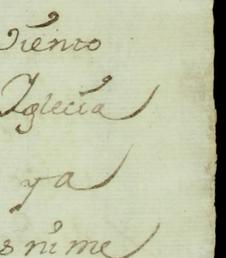 viento
Iglecia
ya
s ni me